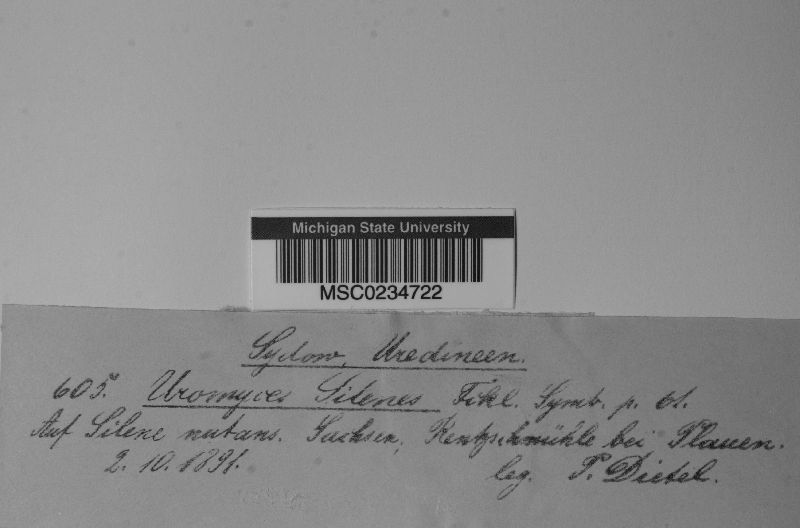 Michigan State University
MSC0234722
Sydow, Uredineen.
605. Uromyces Silenes Fckl. Symb. p. 61.
Auf Silene nutans. Sachsen, Rentzschmühle bei Plauen.
2. 10. 1891.
leg. P. Dietel.